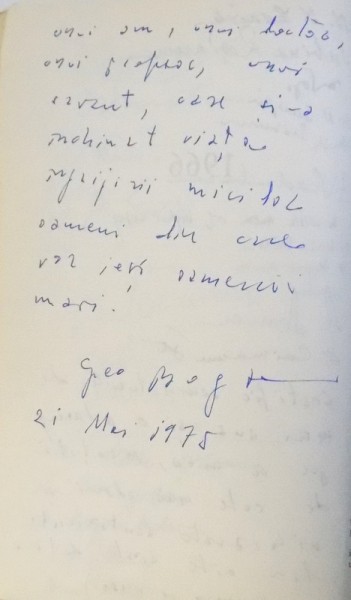 unui om, unui doctor,
unui profesor, unui
savant, care și-a
închinat viața
îngrijirii micilor
oameni din care
vor ieși oamenii
mari!
Geo Bogza
21 Mai 1975